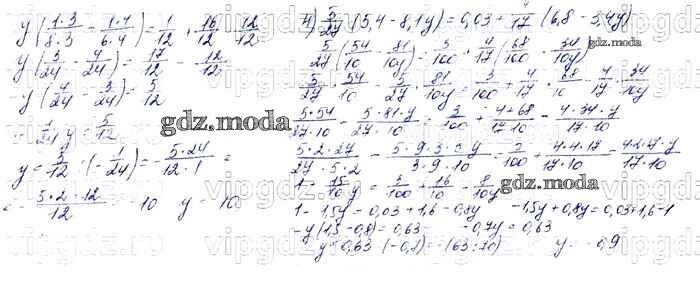 y(1·3/8·3 − 1·4/6·4) = 1/12 + 16/12 − 12/12
y(3/24 − 4/24) = 17/12 − 12/12
−y(4/24 − 3/24) = 5/12
−1/24 y = 5/12
y = 5/12 : (−1/24) = −5·24/12·1 =
= −5·2·12/12 = −10 y = −10
4) 5/27 (5,4 − 8,1y) = 0,03 + 4/17 (6,8 − 3,4y)
5/27 (54/10 − 81/10 y) = 3/100 + 4/17 (68/10 − 34/10 y)
5/27 · 54/10 − 5/27 · 81/10 y = 3/100 + 4/17 · 68/10 − 4/17 · 34/10 y
5·54/27·10 − 5·81·y/27·10 = 3/100 + 4·68/17·10 − 4·34·y/17·10
5·2·27/27·5·2 − 5·9·3·3y/3·9·10 = 3/100 + 4·4·17/17·10 − 4·2·17·y/17·10
1 − 15/10 y = 3/100 + 16/10 − 8/10 y
1 − 1,5y = 0,03 + 1,6 − 0,8y −1,5y + 0,8y = 0,03 + 1,6 − 1
−y(1,5 − 0,8) = 0,63 −0,7y = 0,63
y = 0,63 : (−0,7) = −(63:70) y = −0,9
gdz.moda
gdz.moda
gdz.moda
vipgdz